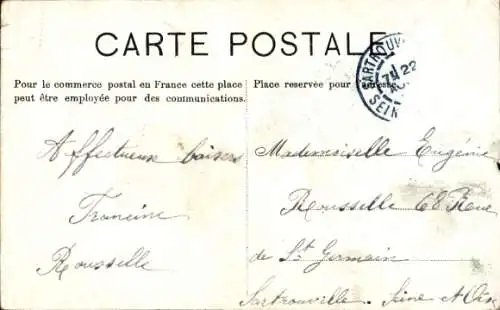 CARTE POSTALE
SARTROUV
7 22
SEIN
Pour le commerce postal en France cette place
peut être employée pour des communications.
Place reservée pour l'adresse.
Affectueux baisers
Francine
Rousselle
Mademoiselle Eugénie
Rousselle 68 Rue
de St Germain
Sartrouville. Seine et Oise